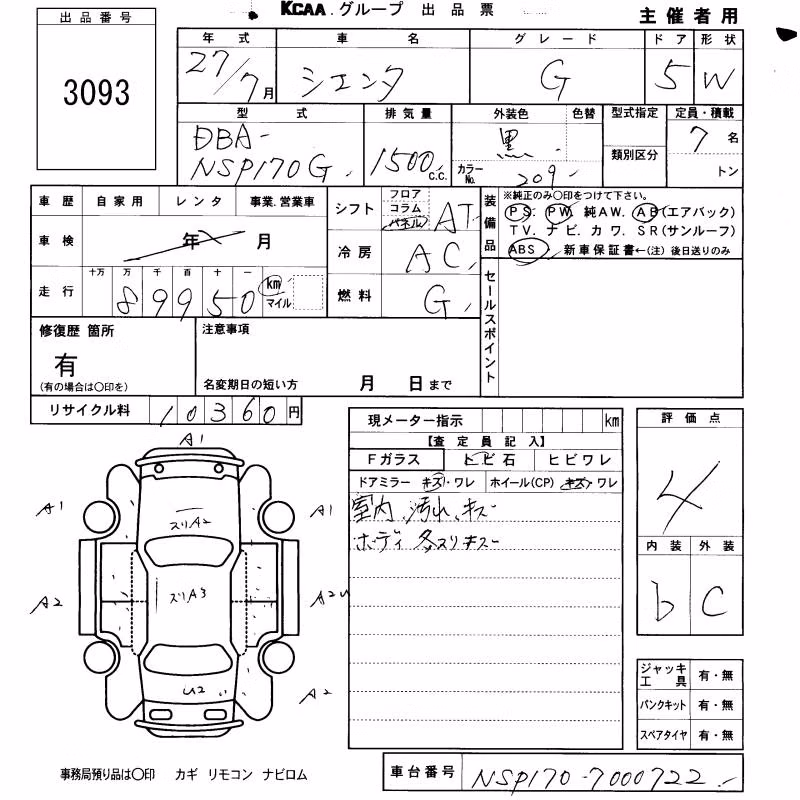 出品番号
3093
KCAA.グループ 出品票
主催者用
年式 車名 グレード ドア 形状
27/7月 シエンタ G 5 W
型式 排気量 外装色 色替 型式指定 定員・積載
DBA-
NSP170G 1500 c.c. 黒 カラーNo. 209 類別区分 7名
トン
車歴 自家用 レンタ 事業.営業車
車検 年 月
走行 十万 万 千 百 十 一
89950 km マイル
シフト フロア コラム パネル AT
冷房 AC
燃料 G
装備品 ※純正のみ〇印をつけて下さい。
PS. PW. 純AW. AB(エアバック)
TV. ナビ. カワ. SR(サンルーフ)
ABS 新車保証書←(注)後日送りのみ
セールスポイント
修復歴 箇所
有
(有の場合は〇印を)
注意事項
名変期日の短い方 月 日まで
リサイクル料 10360円
現メーター指示 km
【査定員記入】
Fガラス トビ石 ヒビワレ
ドアミラー キズ・ワレ ホイール(CP) キズ・ワレ
室内、汚れ、キズー
ボディ 多スリキズー
評価点
4
内装 外装
b C
A1
A1 スリA2 A1
A2 スリA3 A2U
U2 A2
ジャッキ工具 有・無
パンクキット 有・無
スペアタイヤ 有・無
事務局預り品は〇印 カギ リモコン ナビロム
車台番号 NSP170-7000722